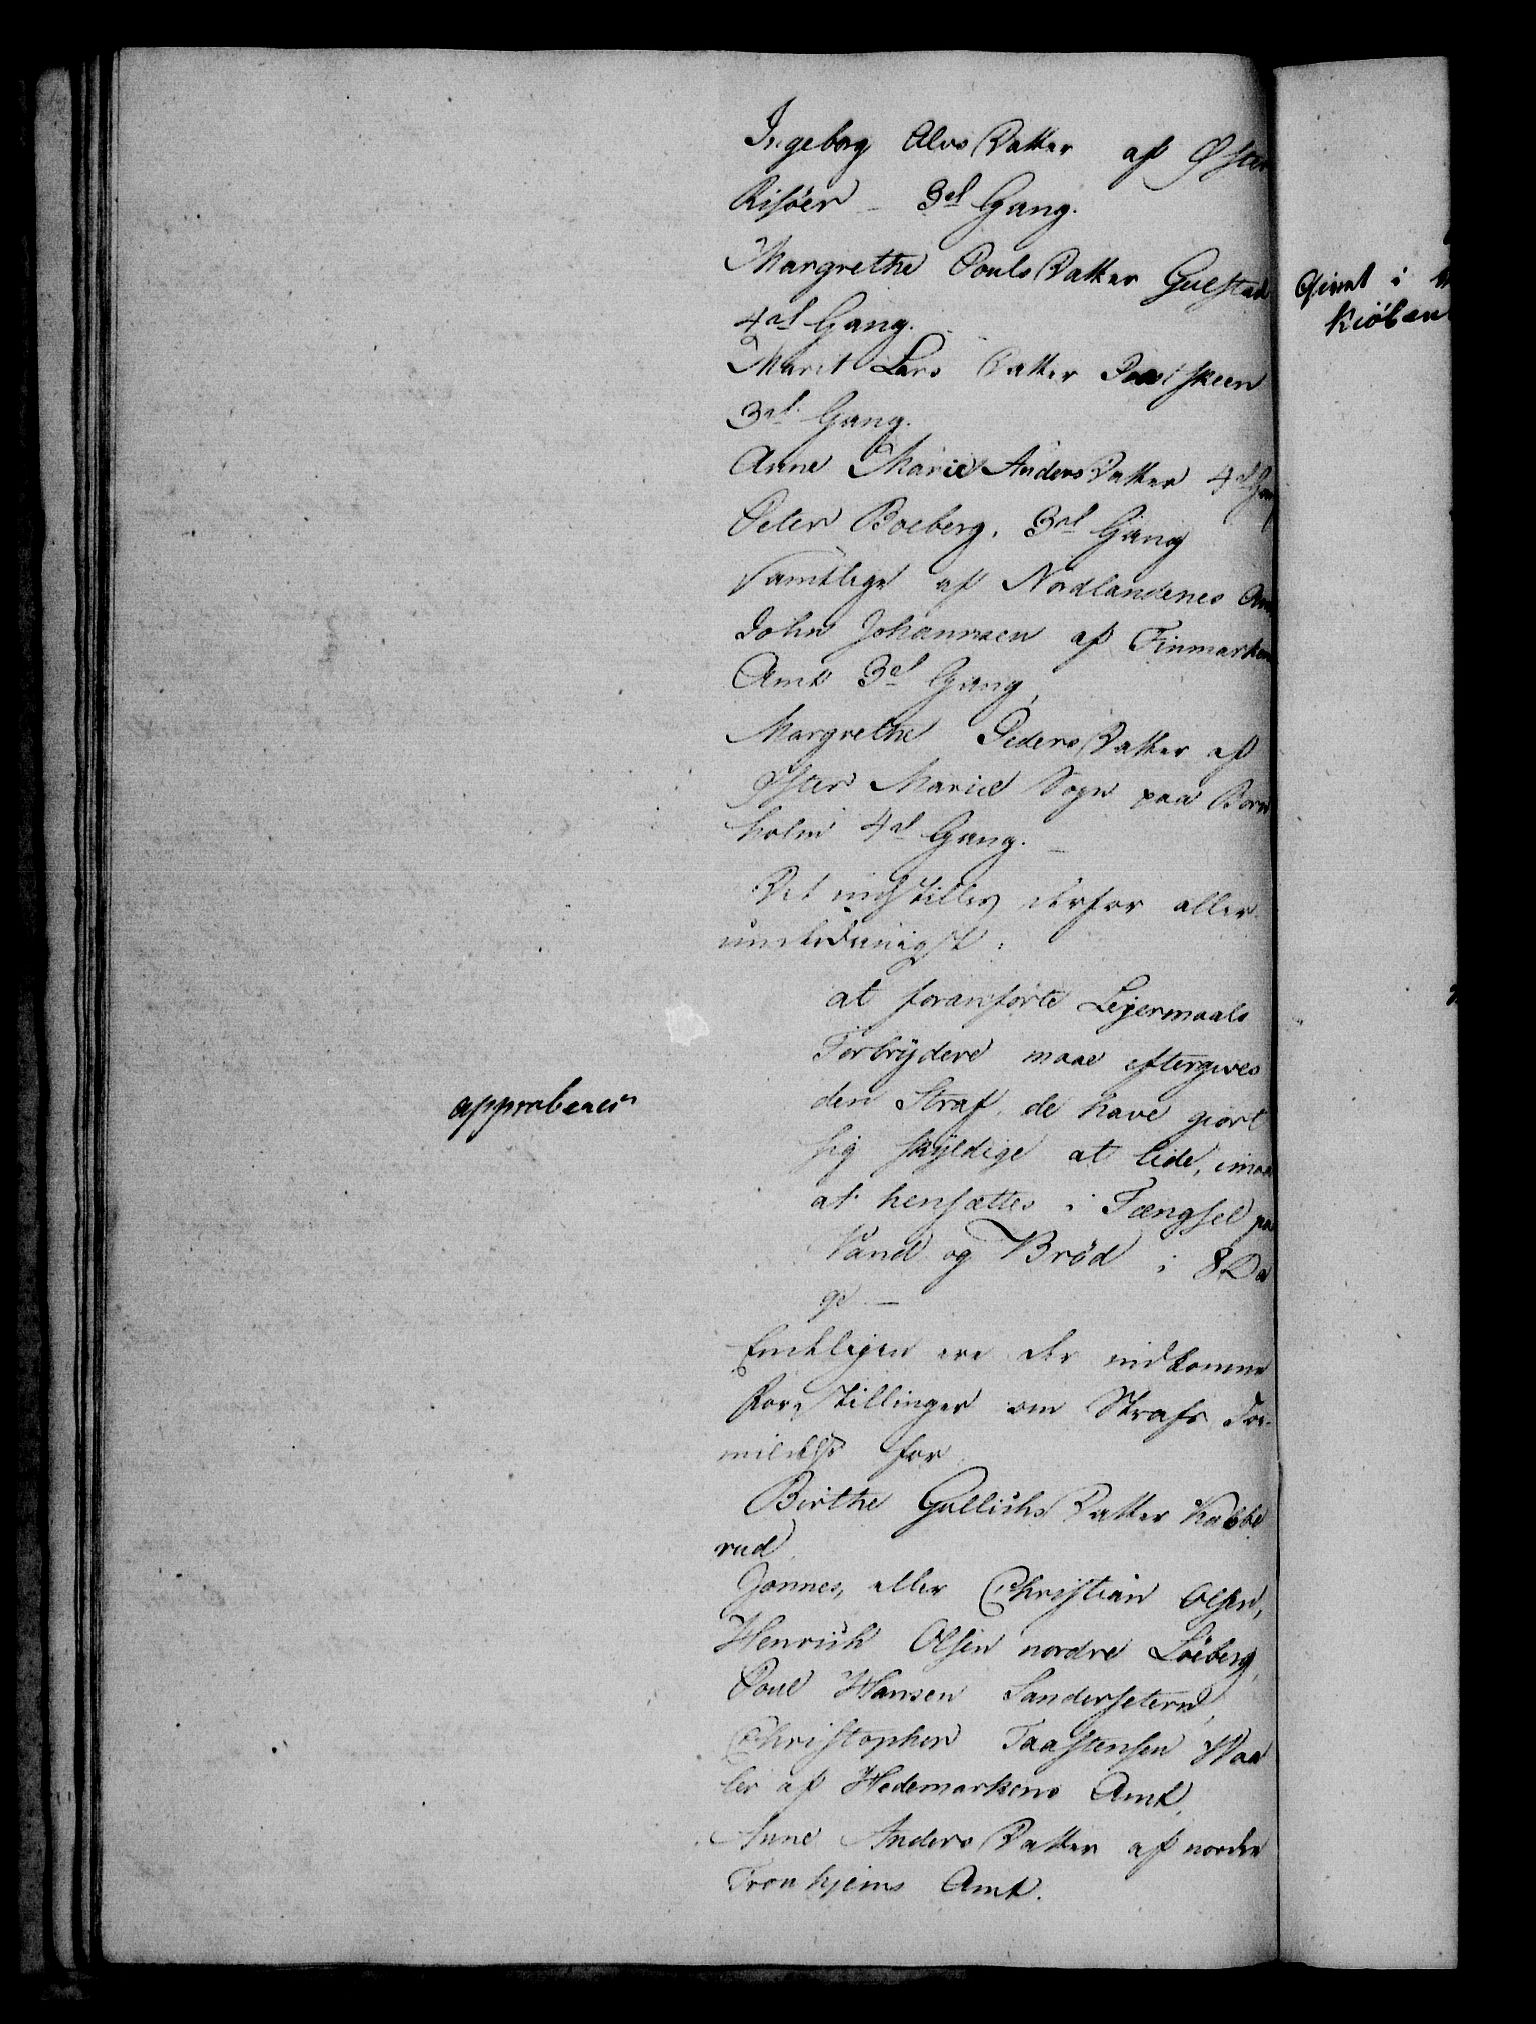 Ingeborg Alvs Datter af Øster
Risöer - 3d Gang.
Margrethe Pouls Datter Gulstad
4d Gang.
Marit Lars Datter
3d Gang.
Anne Marie Anders Datter 4d Gang
Peter Boeberg. 3d Gang
samtlige af Nordlandenes Am
John Johannsen af Finmarkens
Amt 3d Gang,
Margrethe Peders Datter af
Øster Marie Sogn paa Born
holm 4d Gang. -
Det indstilles derfor aller-
underdanigst:
at foranförte Lejermaals
Forbrydere maae eftergives
den Straf, de have giort
sig skyldige at lide, imod
at hensættes i Fængsel paa
Vand og Bröd i 8 Da
ge -
approberes
Endeligen ere der indkomne
Forestillinger om Strafs For-
mildelse for
Birthe Gullichs Datter Kabbe
rud,
Jonnes, eller Christian Olsen,
Henrich Olsen nordre Löeberg,
Poul Hansen Sandersetern,
Christopher Taastensen Waa
ler af Hedemarkens Amt,
Anne Anders Datter af nordre
Tronhjems Amt.
Givet i
Kiöben